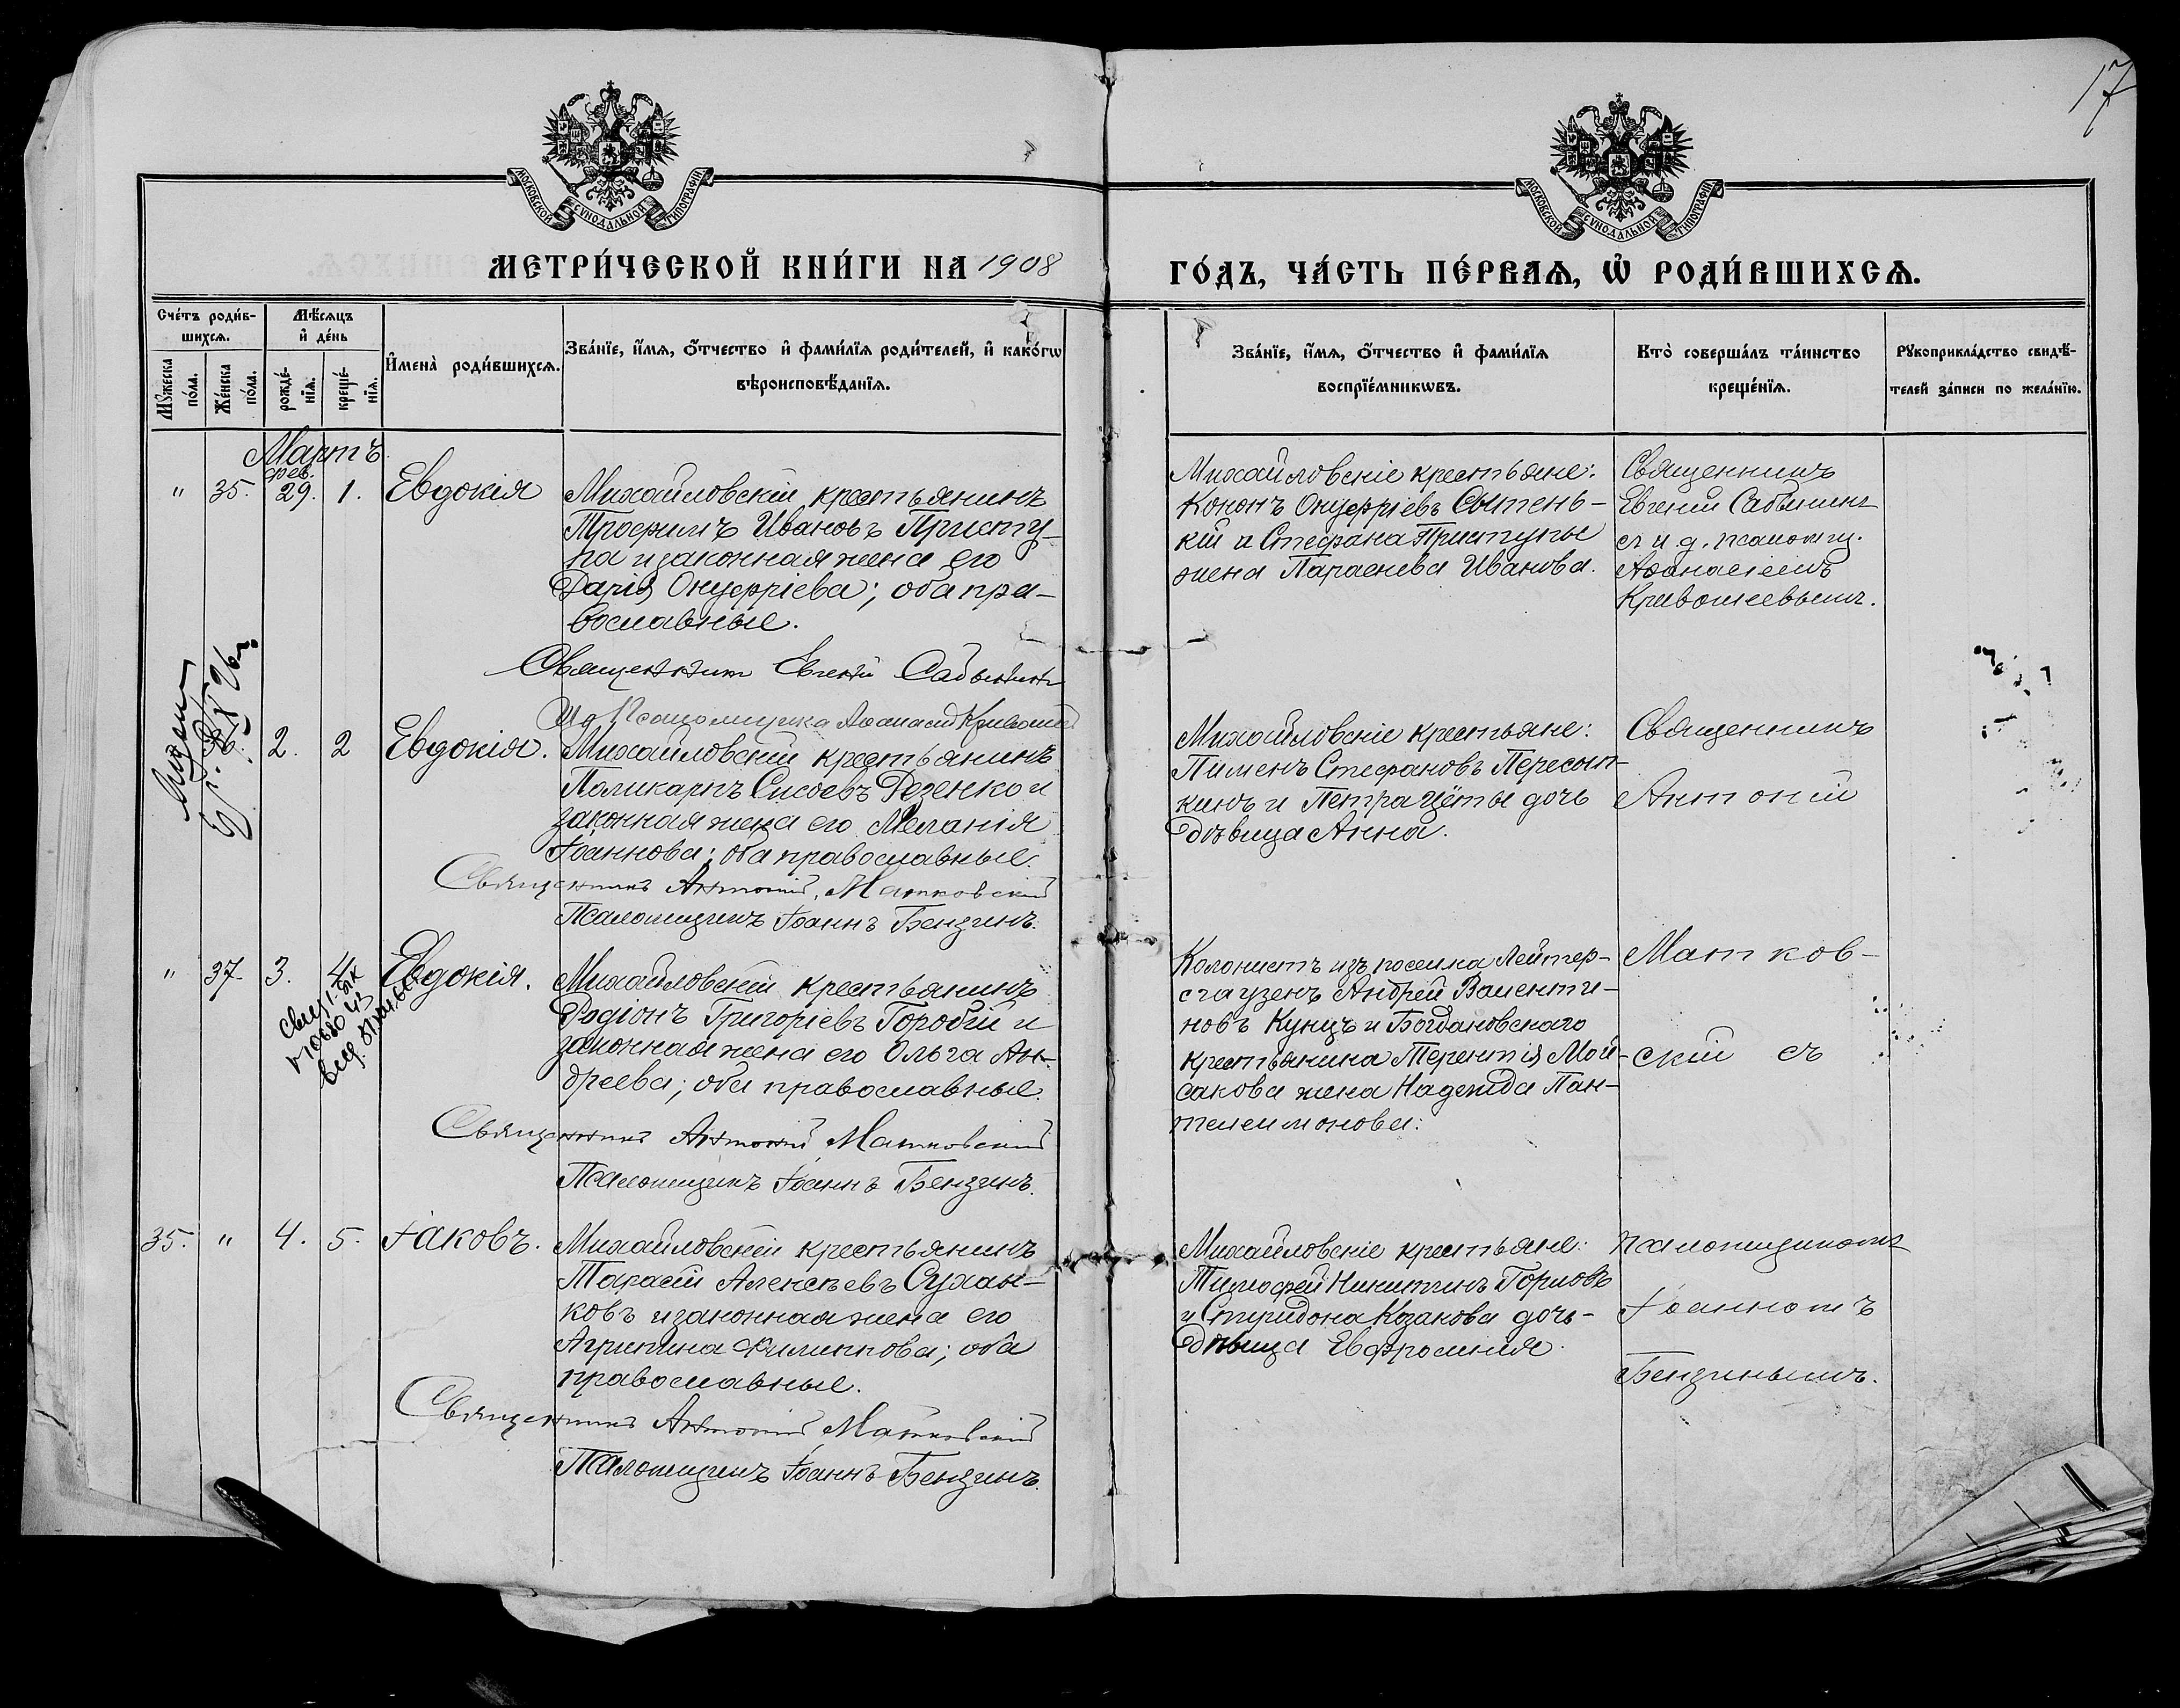 17
МОСКОВСКОЙ СѴНОДАЛЬНОЙ ТИПОГРАФІИ
МОСКОВСКОЙ СѴНОДАЛЬНОЙ ТИПОГРАФІИ
МЕТРИ́ЧЕСКОЙ КНИ́ГИ НА 1908
ГО́ДЪ, ЧА́СТЬ ПЕ́РВАѦ, Ѡ҆ РОДИ́ВШИХСѦ.
Сче́тъ роди́в-
шихсѧ.
Мꙋ́жеска по́ла.
Же́нска по́ла.
Мѣ́сѧцъ
и҆ де́нь
рожде́-
нїѧ.
креще́-
нїѧ.
И҆мена̀ роди́вшихсѧ.
Зва́нїе, и҆́мѧ, ѻ҆́тчество и҆ фами́лїѧ роди́телей, и҆ како́гѡ
вѣроисповѣ́данїѧ.
Зва́нїе, и҆́мѧ, ѻ҆́тчество и҆ фами́лїѧ
воспрїе́мникѡвъ.
Кто̀ соверша́лъ та́инство
креще́нїѧ.
Рꙋкоприкла́дство свидѣ́-
телей за́писи по жела́нїю.
Мартъ
фев.
" 35. 29. 1. Евдокія
Михайловскій крестьянинъ
Трофимъ Ивановъ Присту-
па и законная жена его
Дарія Онуфріева; оба пра-
вославные.
Священникъ Евгеній Сабынинъ
И д Псаломщика Афанасій Кривошей
Михайловскіе крестьяне:
Кононъ Онуфріевъ Сытень-
кій и Стефана Приступы
жена Параскева Иванова.
Священникъ
Евгеній Сабынинъ
съ и. д. псаломщ.
Афанасіемъ
Кривошеевымъ.
2. 2 Евдокія.
Михайловскій крестьянинъ
Поликарпъ Сисоевъ Дезенко и
законная жена его Меланія
Іоаннова; оба православные.
Священникъ Антоній Матковскій
Псаломщикъ Іоаннъ Бензинъ.
Михайловскіе крестьяне:
Пименъ Стефановъ Пересып-
кинъ и Петра Цёты дочь
дѣвица Анна.
Священникъ
Антоній
" 37. 3. 4 Евдокія.
Михайловскій крестьянинъ
Родіонъ Григоріевъ Горобій и
законная жена его Ольга Ан-
дреева; оба православные.
Священникъ Антоній Матковскій
Псаломщикъ Іоаннъ Бензинъ.
Колонистъ изъ поселка Лейтер-
сгаузенъ Андрей Валенти-
новъ Кунцъ и Богдановскаго
крестьянина Терентія Мой-
сакова жена Надежда Пан-
телеимонова:
Матков-
скій съ
35. " 4. 5. Іаковъ.
Михайловскій крестьянинъ
Тарасій Алексѣевъ Сухань-
ковъ и законная жена его
Агрипина Филиппова; оба
православные.
Священникъ Антоній Матковскій
Псаломщикъ Іоаннъ Бензинъ.
Михайловскіе крестьяне:
Тимофей Никитинъ Горловъ
и Спиридона Козакова дочь-
дѣвица Евфросинія.
псаломщикомъ
Іоанномъ
Бензинымъ.